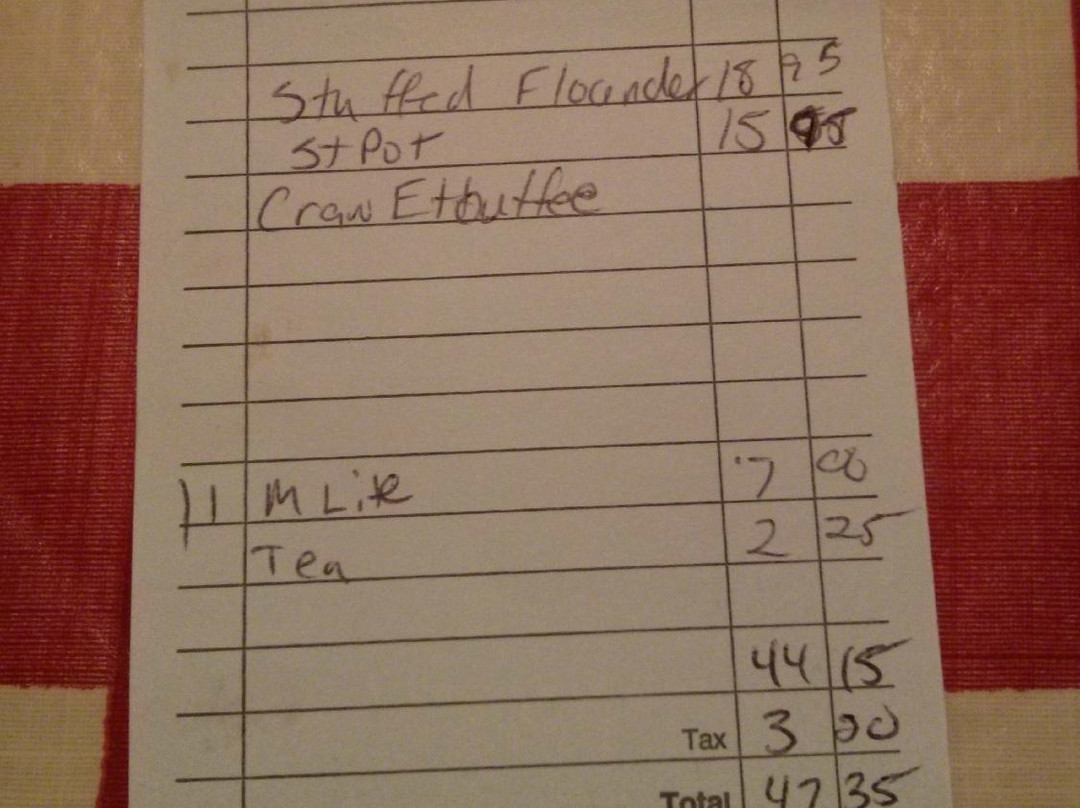 Stuffed Flounder 18 95
St Pot 15 95
Craw Etouffee
11 M Lite 7 00
Tea 2 25
44 15
Tax 3 20
Total 47 35